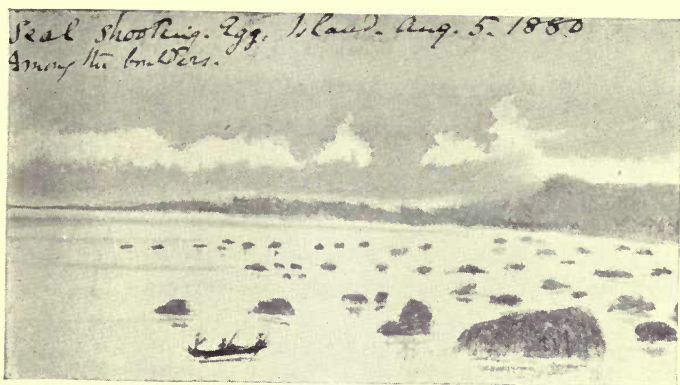 Seal shooting. Egg. Island. Aug. 5. 1880
Among the boulders.